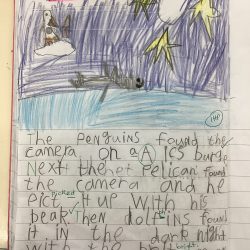 The Penguins found the
camera on a A ics burge
Next the pelican found
the camera and he
Picked
pict it up with his
beak Then dolfins found
it in the dark night
with the